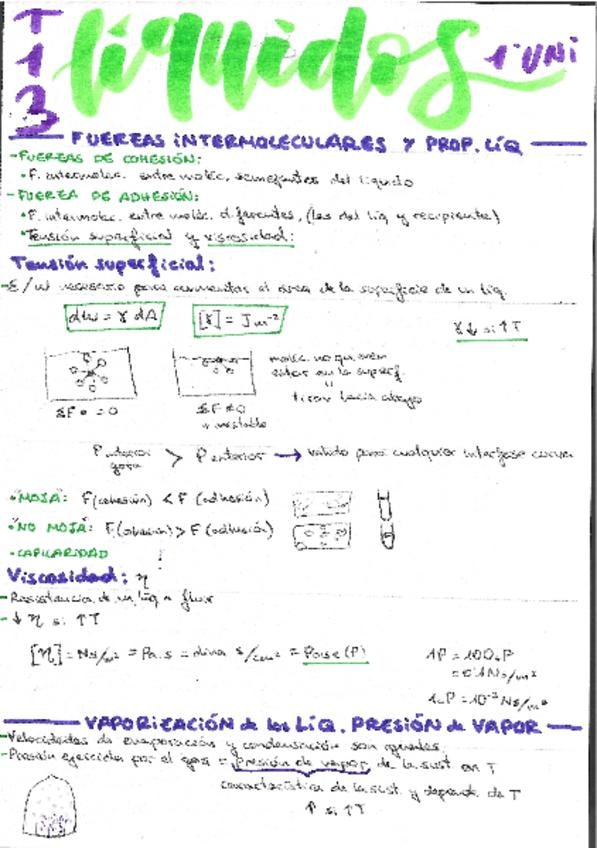 T13
líquidos 1º UNI
FUERZAS INTERMOLECULARES Y PROP. LÍQ
- FUERZAS DE COHESIÓN:
• F. intermolec. entre moléc. semejantes del líquido
- FUERZA DE ADHESIÓN:
• F. intermolec. entre moléc. diferentes, (las del líq y recipiente)
• Tensión superficial y viscosidad:
Tensión superficial:
- E/w necesario para aumentar el área de la superficie de un líq.
dw = γ dA [γ] = J m⁻² γ↓ si ↑T
moléc. no quieren
estar en la superf.
tirar hacia abajo
ΣF = 0 ΣF ≠ 0
+ inestable
P interior gota > P exterior → válido para cualquier interfase curva
• "MOJA": F(cohesión) < F (adhesión)
• "NO MOJA": F(cohesión) > F (adhesión)
• CAPILARIDAD
Viscosidad: η
- Resistencia de un líq a fluir
- ↓ η si ↑T
[η] = Ns/m² = Pa.s = dina s/cm² = Poise (P)
1P = 100cP
= 0'1Ns/m²
1cP = 10⁻³ Ns/m²
VAPORIZACIÓN de los LÍQ. PRESIÓN de VAPOR
- Velocidades de evaporación y condensación son iguales.
- Presión ejercida por el gas = presión de vapor de la sust. en T
característica de la sust. y depende de T
P si ↑T